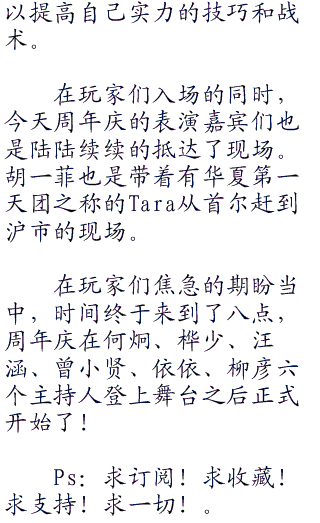 以提高自己实力的技巧和战
术。
在玩家们入场的同时，
今天周年庆的表演嘉宾们也
是陆陆续续的抵达了现场。
胡一菲也是带着有华夏第一
天团之称的Tara从首尔赶到
沪市的现场。
在玩家们焦急的期盼当
中，时间终于来到了八点，
周年庆在何炯、桦少、汪
涵、曾小贤、依依、柳彦六
个主持人登上舞台之后正式
开始了！
Ps：求订阅！求收藏！
求支持！求一切！。